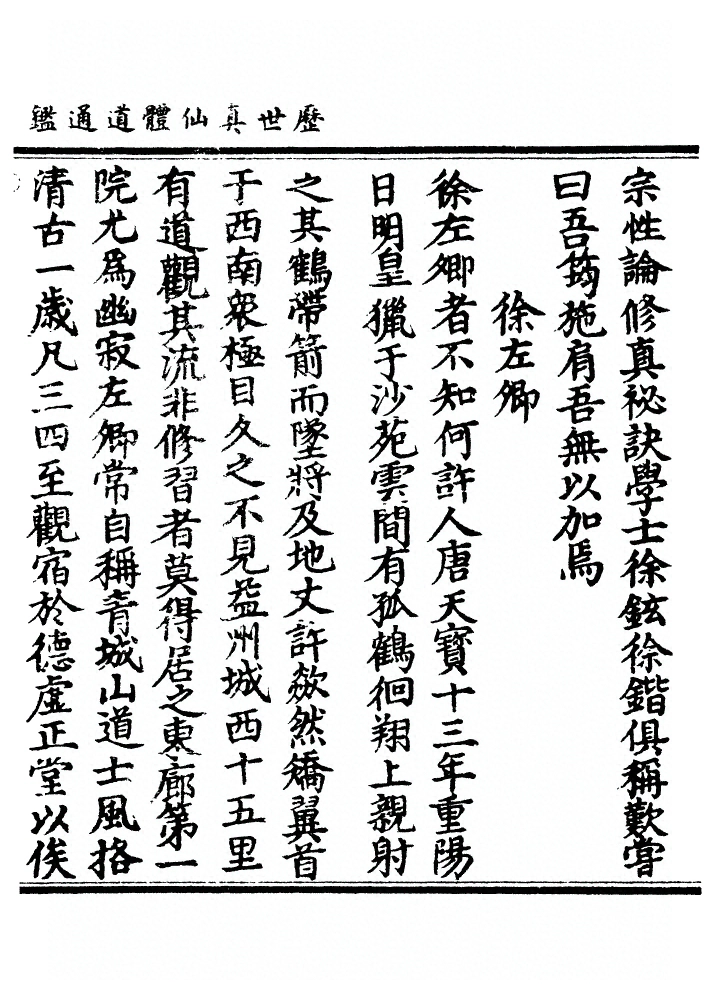 歷世真仙體道通鑑
宗性論修真祕訣學士徐鉉徐鍇俱稱歎嘗
曰吾筠施肩吾無以加焉
徐左卿
徐左卿者不知何許人唐天寶十三年重陽
日明皇獵于沙苑雲間有孤鶴徊翔上親射
之其鶴帶箭而墜將及地丈許欻然矯翼首
于西南衆極目久之不見益州城西十五里
有道觀其流非修習者莫得居之東廊第一
院尤爲幽寂左卿常自稱青城山道士風格
清古一歲凡三四至觀宿於德虛正堂以俟